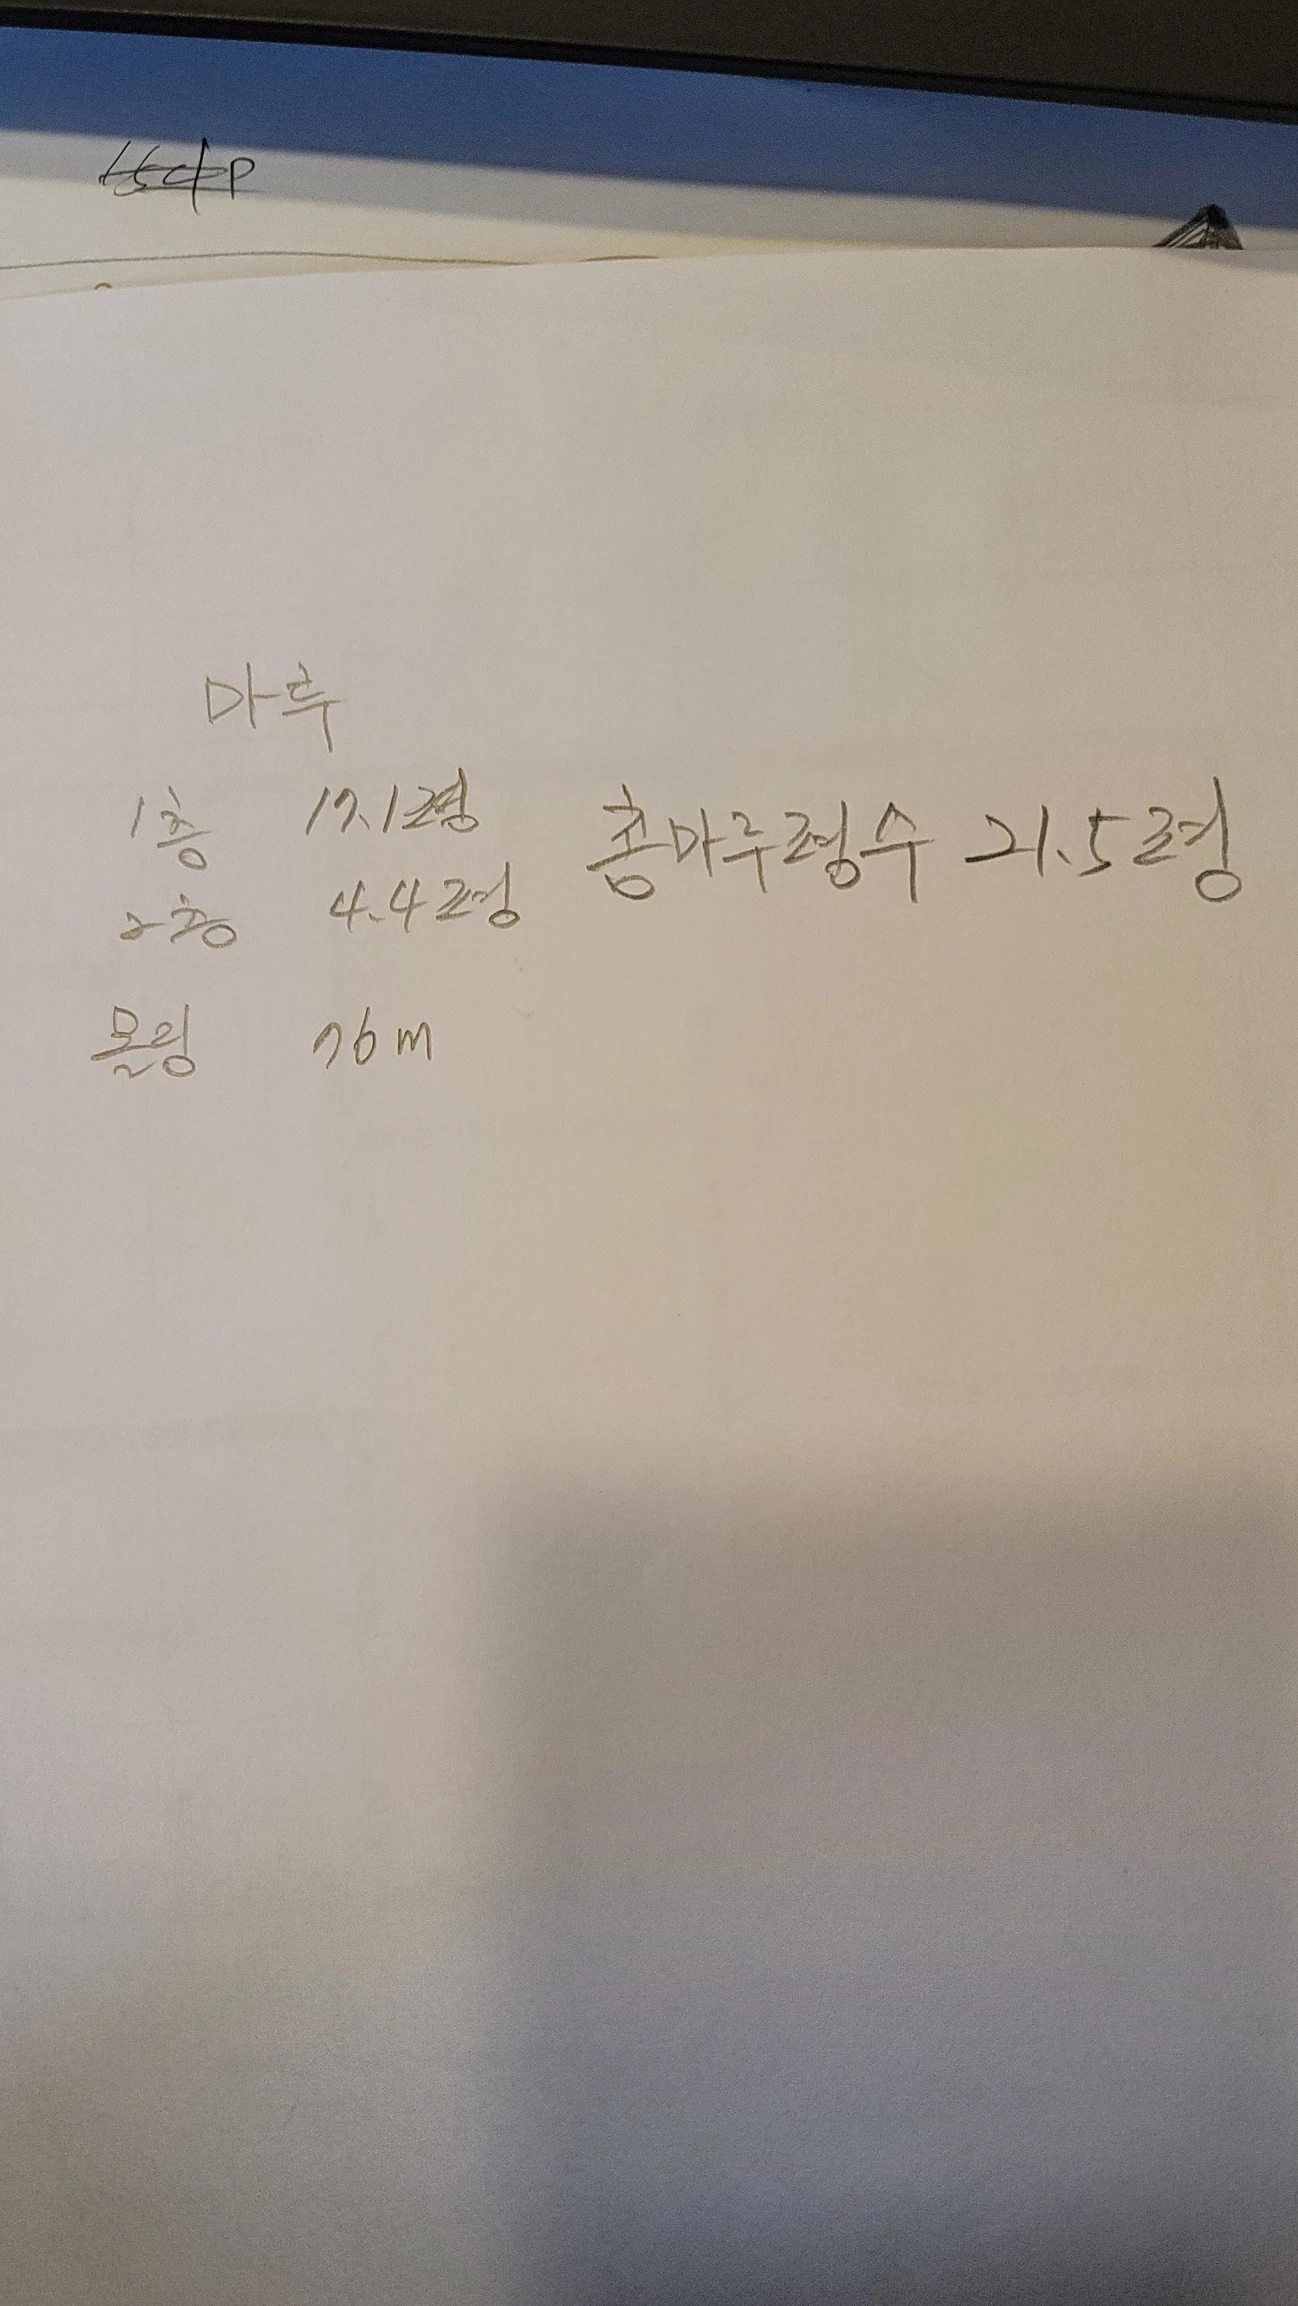 마루
1층 17.1평 총마루평수 21.5평
2층 4.4평
몰링 76m